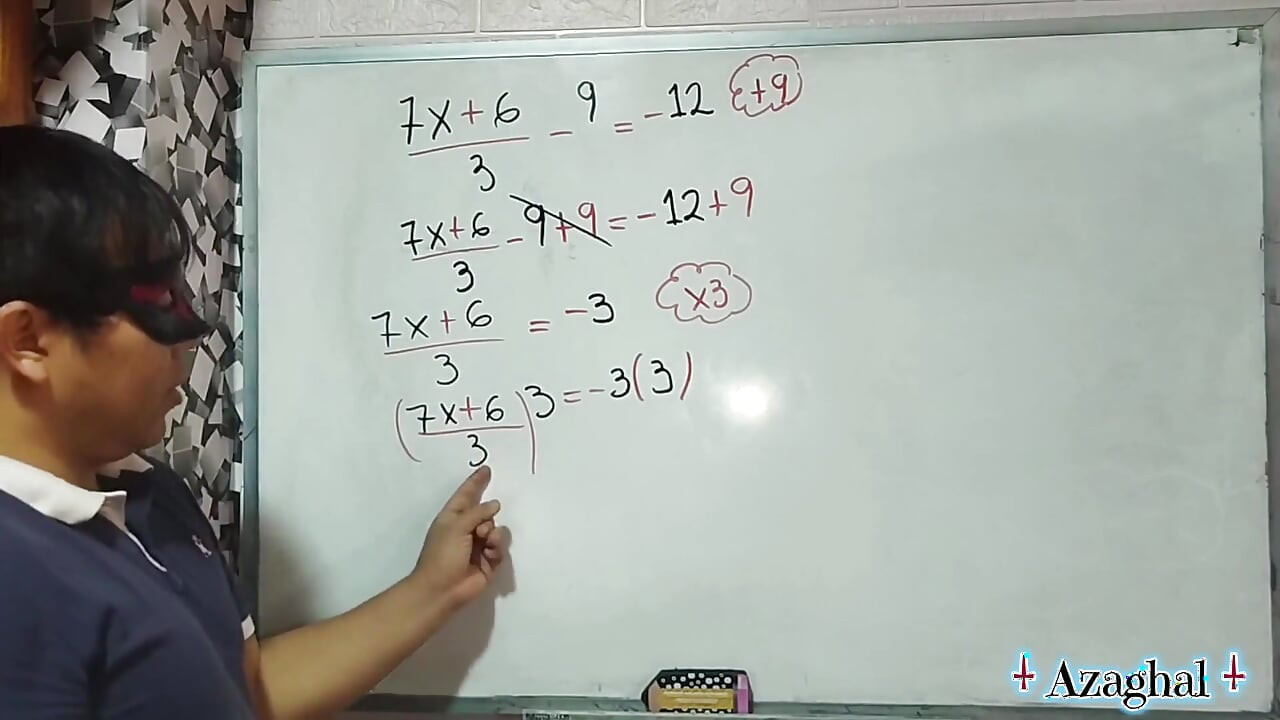 7x+6 - 9 = -12 +9
3
7x+6 - 9+9 = -12+9
3
7x+6 = -3 x3
3
(7x+6)3 = -3(3)
3
Azaghal